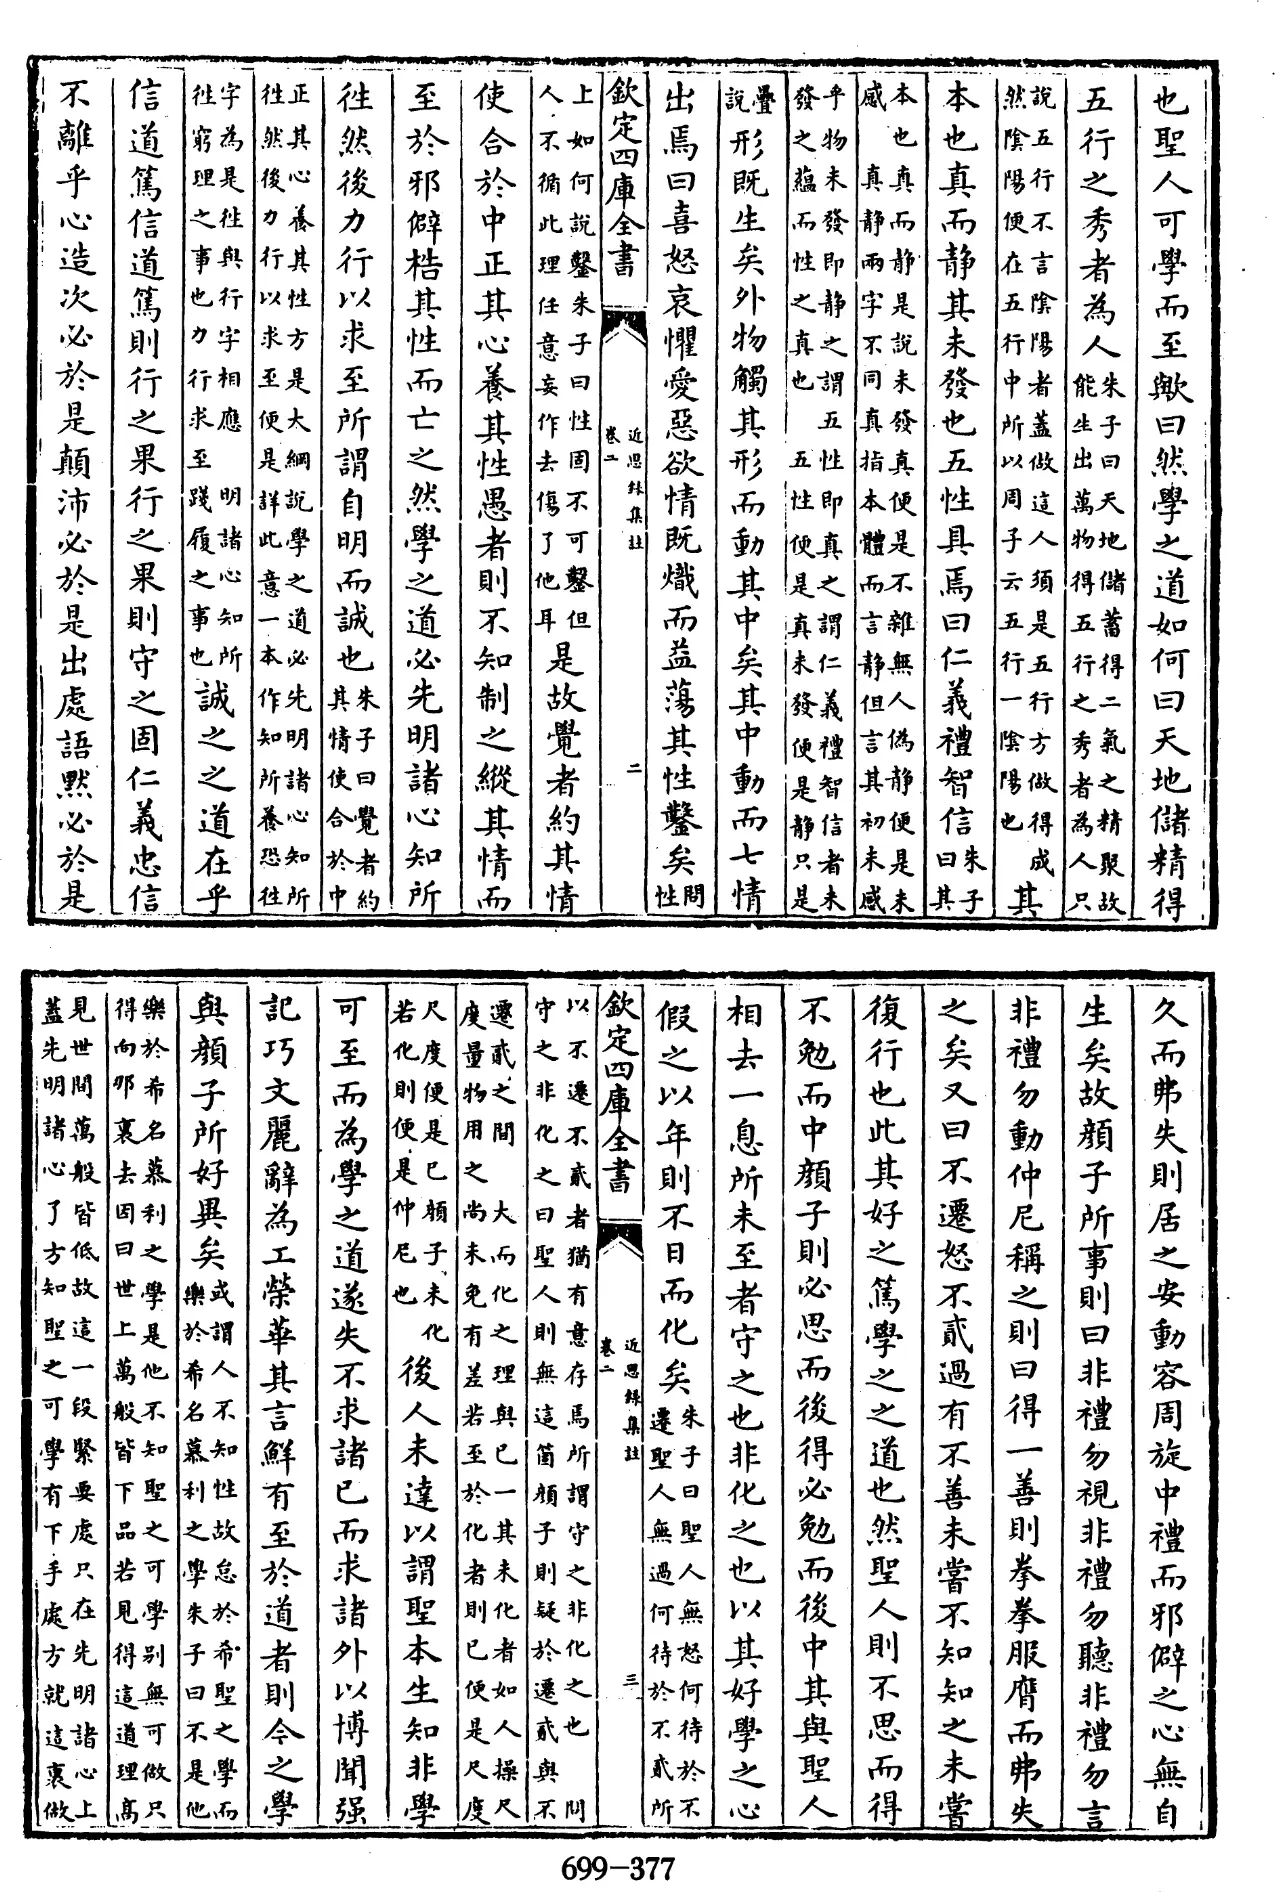 也聖人可學而至歟曰然學之道如何曰天地儲精得
五行之秀者為人朱子曰天地儲蓄得二氣之精聚故能生出萬物得五行之秀者為人只
說五行不言陰陽者蓋做這人須是五行方做得成然陰陽便在五行中所以周子云五行一陰陽也其
本也真而静其未發也五性具焉曰仁義禮智信朱子曰其
本也真而静是說未發真便是不雜無人偽静便是未感 真静兩字不同真指本體而言静但言其初未感
乎物未發即静之謂五性即真之謂仁義禮智信者未發之藴而性之真也 五性便是真未發便是静只是
疊說形既生矣外物觸其形而動其中矣其中動而七情
出焉曰喜怒哀懼愛惡欲情既熾而益蕩其性鑿矣問性
欽定四庫全書 近思録集註 卷二 二
上如何說鑿朱子曰性固不可鑿但人不循此理任意妄作去傷了他耳是故覺者約其情
使合於中正其心養其性愚者則不知制之縱其情而
至於邪僻梏其性而亡之然學之道必先明諸心知所
徃然後力行以求至所謂自明而誠也朱子曰覺者約其情使合於中
正其心養其性方是大綱說學之道必先明諸心知所徃然後力行以求至便是詳此意一本作知所養恐徃
字為是徃與行字相應 明諸心知所徃窮理之事也力行求至踐履之事也誠之之道在乎
信道篤信道篤則行之果行之果則守之固仁義忠信
不離乎心造次必於是顛沛必於是出處語默必於是
久而弗失則居之安動容周旋中禮而邪僻之心無自
生矣故顔子所事則曰非禮勿視非禮勿聽非禮勿言
非禮勿動仲尼稱之則曰得一善則拳拳服膺而弗失
之矣又曰不遷怒不貳過有不善未嘗不知知之未嘗
復行也此其好之篤學之之道也然聖人則不思而得
不勉而中顔子則必思而後得必勉而後中其與聖人
相去一息所未至者守之也非化之也以其好學之心
假之以年則不日而化矣朱子曰聖人無怒何待於不遷聖人無過何待於不貳所
欽定四庫全書 近思録集註 卷二 三
以不遷不貳者猶有意存焉所謂守之非化之也 問守之非化之曰聖人則無這箇顔子則疑於遷貳與不
遷貳之間 大而化之理與已一其未化者如人操尺度量物用之尚未免有差若至於化者則已便是尺度
尺度便是已顔子未化若化則便是仲尼也後人未達以謂聖本生知非學
可至而為學之道遂失不求諸已而求諸外以博聞强
記巧文麗辭為工榮華其言鮮有至於道者則今之學
與顔子所好異矣或謂人不知性故怠於希聖之學而樂於希名慕利之學朱子曰不是他
樂於希名慕利之學是他不知聖之可學别無可做只得向那裏去因曰世上萬般皆下品若見得這道理高
見世間萬般皆低故這一段緊要處只在先明諸心上蓋先明諸心了方知聖之可學有下手處方就這裏做
699-377